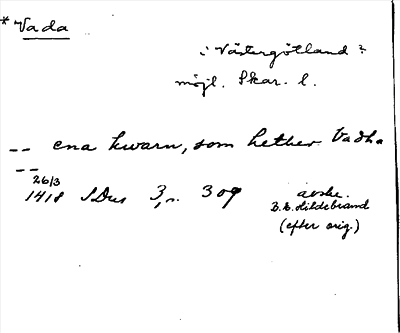 * Vada
i Västergötland?
möjl. Skar. l.
-- ena kwarn, som hether Vadha
--
26/3
1418 SDns 3, n. 309 avskr.
B.E. Hildebrand
(efter orig.)